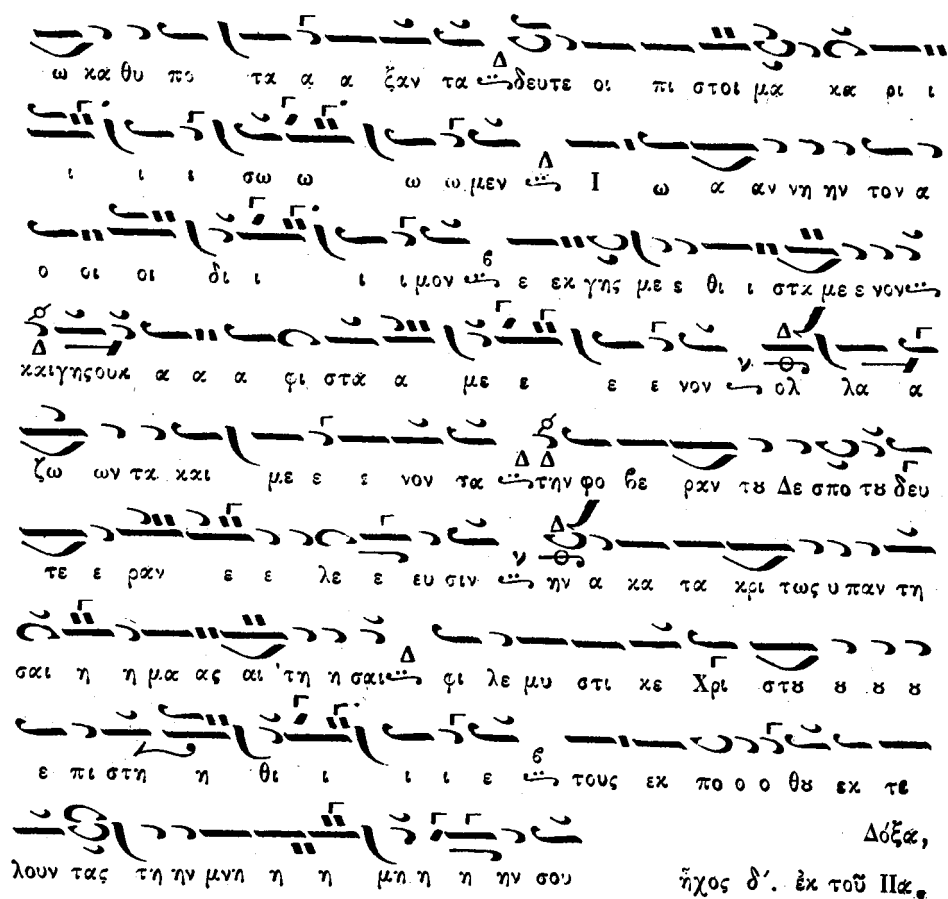 ω κα θυ πο τα α α ξαν τα Δ δευτε οι πι στοι μα κα ρι ι
ι ι ι σω ω ω ω μεν Δ Ι ω α αν νη ην τον α
ο οι οι δι ι ι ι μον β ε εκ γης με ε θι ι στα με ε νον
Δ και γης ουκ α α α φι στα α με ε ε ε νον ν Δ ολ λα α
ζω ων τα και με ε ε νον τα Δ Δ την φο βε ραν τȣ Δε σπο τȣ δευ
τε ε ραν ε ε λε ε ευ σιν ν Δ ην α κα τα κρι τως υ παν τη
σαι η η μα ας αι τη η σαι Δ φι λε μυ στι κε Χρι στȣ ȣ ȣ ȣ
ε πι στη η θι ι ι ι ε β τους εκ πο ο ο θȣ εκ τε
λουν τας τη ην μνη η η μη η η ην σου
Δόξα,
ἦχος δ΄. ἐκ τοῦ Πα.